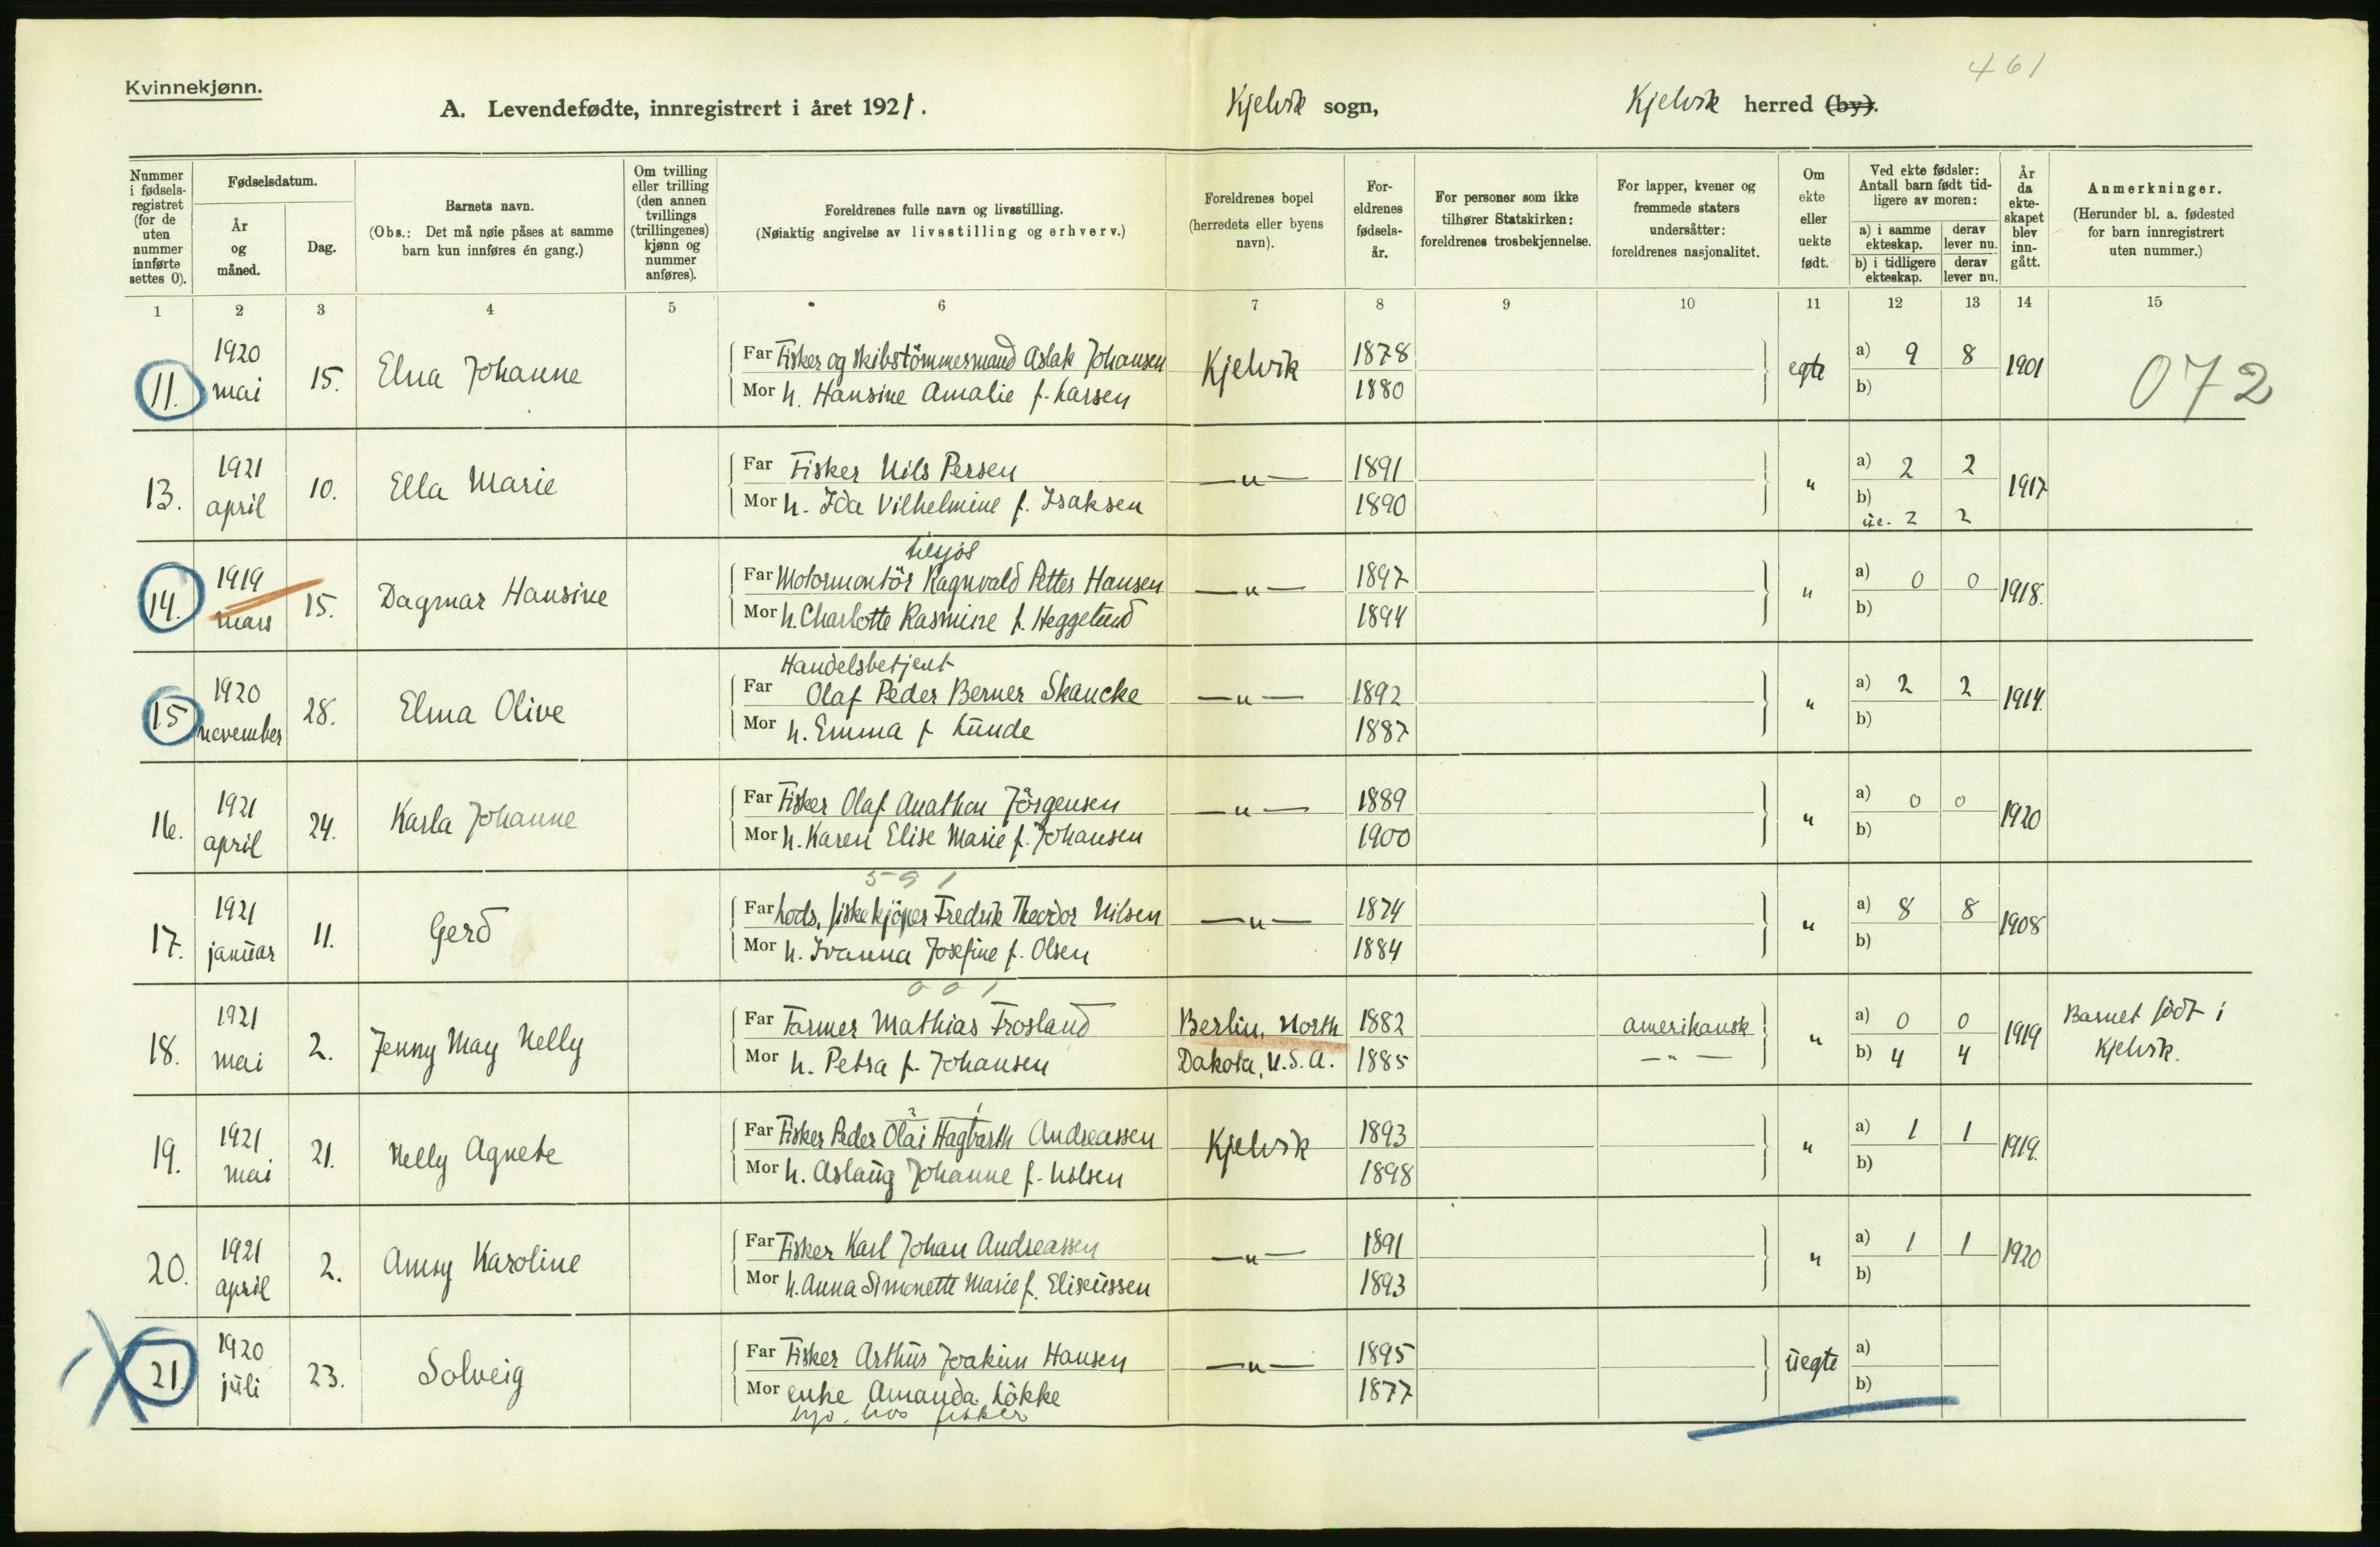 461
Kvinnekjønn.
A. Levendefødte, innregistrert i året 1921. Kjelvik sogn, Kjelvik herred (by).
Nummer i fødsels-registret (for de uten nummer innførte settes 0).
Fødselsdatum.
År og måned.
Dag.
Barnets navn.
(Obs.: Det må nøie påses at samme barn kun innføres én gang.)
Om tvilling eller trilling (den annen tvillings (trillingenes) kjønn og nummer anføres).
Foreldrenes fulle navn og livsstilling.
(Nøiaktig angivelse av livsstilling og erhverv.)
Foreldrenes bopel (herredets eller byens navn).
For-eldrenes fødsels-år.
For personer som ikke tilhører Statskirken: foreldrenes trosbekjennelse.
For lapper, kvener og fremmede staters undersåtter: foreldrenes nasjonalitet.
Om ekte eller uekte født.
Ved ekte fødsler: Antall barn født tid-ligere av moren:
a) i samme ekteskap. derav lever nu.
b) i tidligere ekteskap. derav lever nu.
År da ekte-skapet blev inn-gått.
Anmerkninger.
(Herunder bl. a. fødested for barn innregistrert uten nummer.)
1 2 3 4 5 6 7 8 9 10 11 12 13 14 15
11. 1920 mai 15. Elna Johanne Far Fisker og skibstömmermand Aslak Johansen Kjelvik 1878 egte a) 9 8 1901 072
Mor h. Hansine Amalie f. Larsen 1880 b)
13. 1921 april 10. Ella Marie Far Fisker Nils Persen —"— 1891 " a) 2 2 1917
Mor h. Ida Vilhelmine f. Isaksen 1890 b)
ue. 2 2
14. 1919 mars 15. Dagmar Hansine Far Motormontör Ragnvald Petter Hansen —"— 1897 " a) 0 0 1918.
Mor h. Charlotte Rasmine f. Heggelund 1894 b)
Handelsbetjent
15 1920 november 28. Elma Olive Far Olaf Peder Berner Skancke —"— 1892 " a) 2 2 1914.
Mor h. Emma f. Lunde 1887 b)
16. 1921 april 24. Karla Johanne Far Fisker Olaf Anathon Jörgensen —"— 1889 " a) 0 0 1920
Mor h. Karen Elise Marie f. Johansen 1900 b)
591
17. 1921 januar 11. Gerd Far Lods, fiskekjöper Fredrik Theodor Nilsen —"— 1874 " a) 8 8 1908
Mor h. Ivanna Josefine f. Olsen 1884 b)
001
18. 1921 mai 2. Jenny May Nelly Far Farmer Mathias Frosland Berlin, North 1882 amerikansk " a) 0 0 1919 Barnet födt i
Mor h. Petra f. Johansen Dakota, U.S.A. 1885 —"— b) 4 4 Kjelvik.
2 1
19. 1921 mai 21. Nelly Agnete Far Fisker Peder Olai Hagbarth Andreassen Kjelvik 1893 " a) 1 1 1919.
Mor h. Aslaug Johanne f. Nilsen 1898 b)
20. 1921 april 2. Amsy Karoline Far Fisker Karl Johan Andreassen —"— 1891 " a) 1 1 1920
Mor h. Anna Simonette Marie f. Eliseussen 1893 b)
21 1920 juli 23. Solveig Far Fisker Arthur Joakim Hansen —"— 1895 uegte a)
Mor enke Amanda Lökke 1877 b)
hos fisker